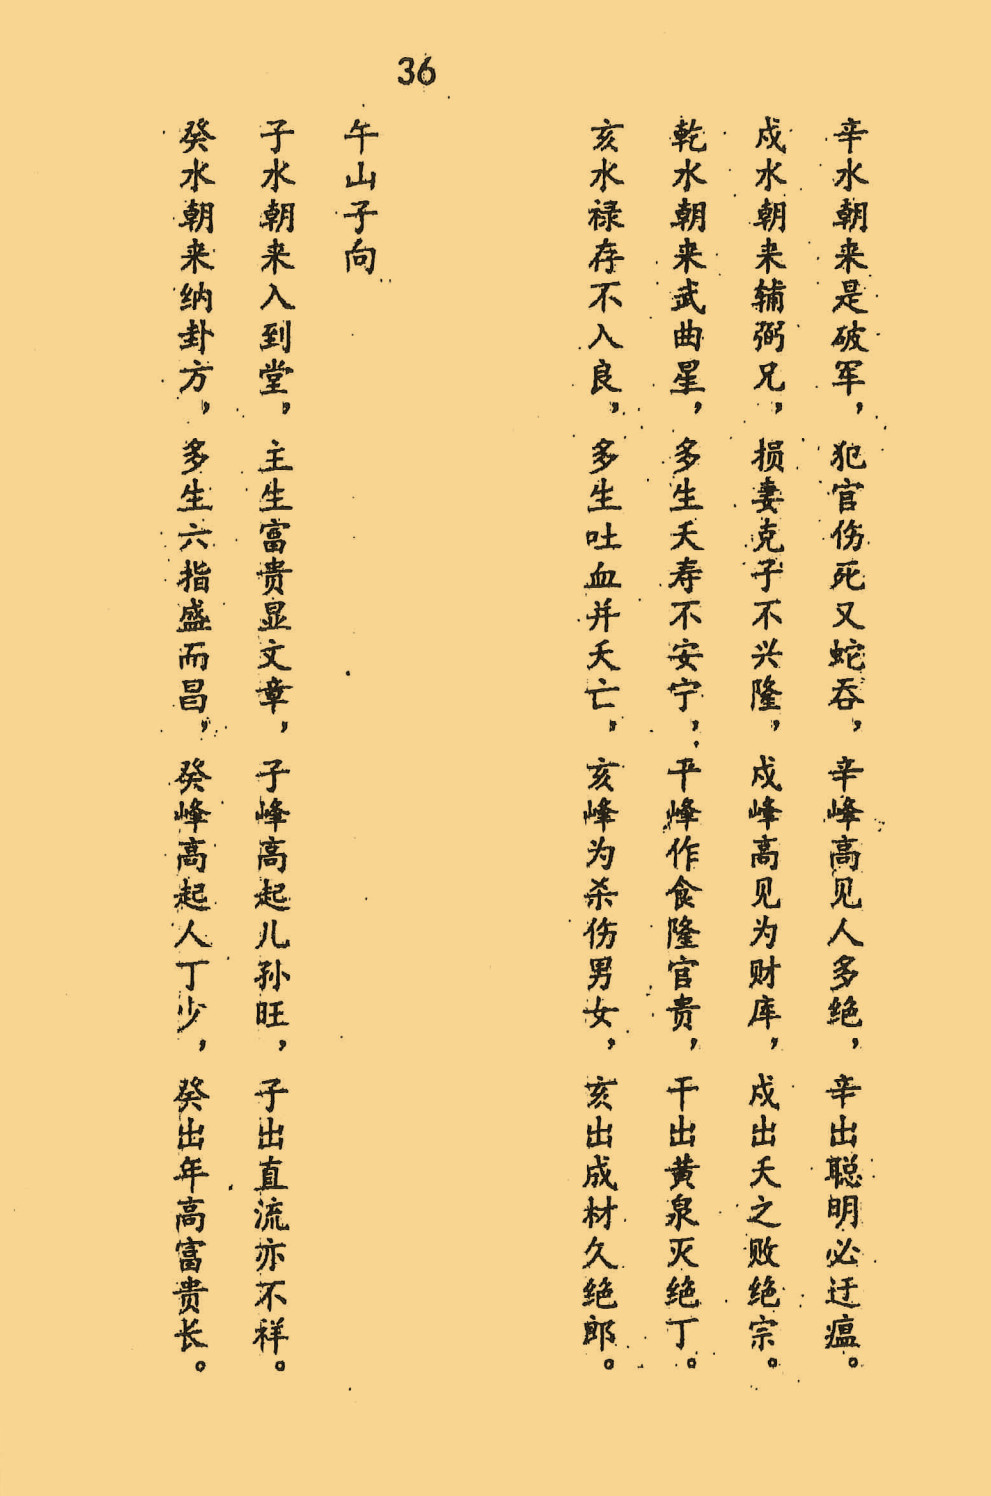 36
辛水朝来是破军，犯官伤死又蛇吞，辛峰高见人多绝，辛出聪明必迂瘟。
戍水朝来辅弼兄，损妻克子不兴隆，戍峰高见为财库，戍出天之败绝宗。
乾水朝来武曲星，多生夭寿不安宁，平峰作食隆官贵，干出黄泉灭绝丁。
亥水禄存不入良，多生吐血并夭亡，亥峰为杀伤男女，亥出成材久绝郎。
午山子向
子水朝来入到堂，主生富贵显文章，子峰高起儿孙旺，子出直流亦不祥。
癸水朝来纳卦方，多生六指盛而昌，癸峰高起人丁少，癸出年高富贵长。